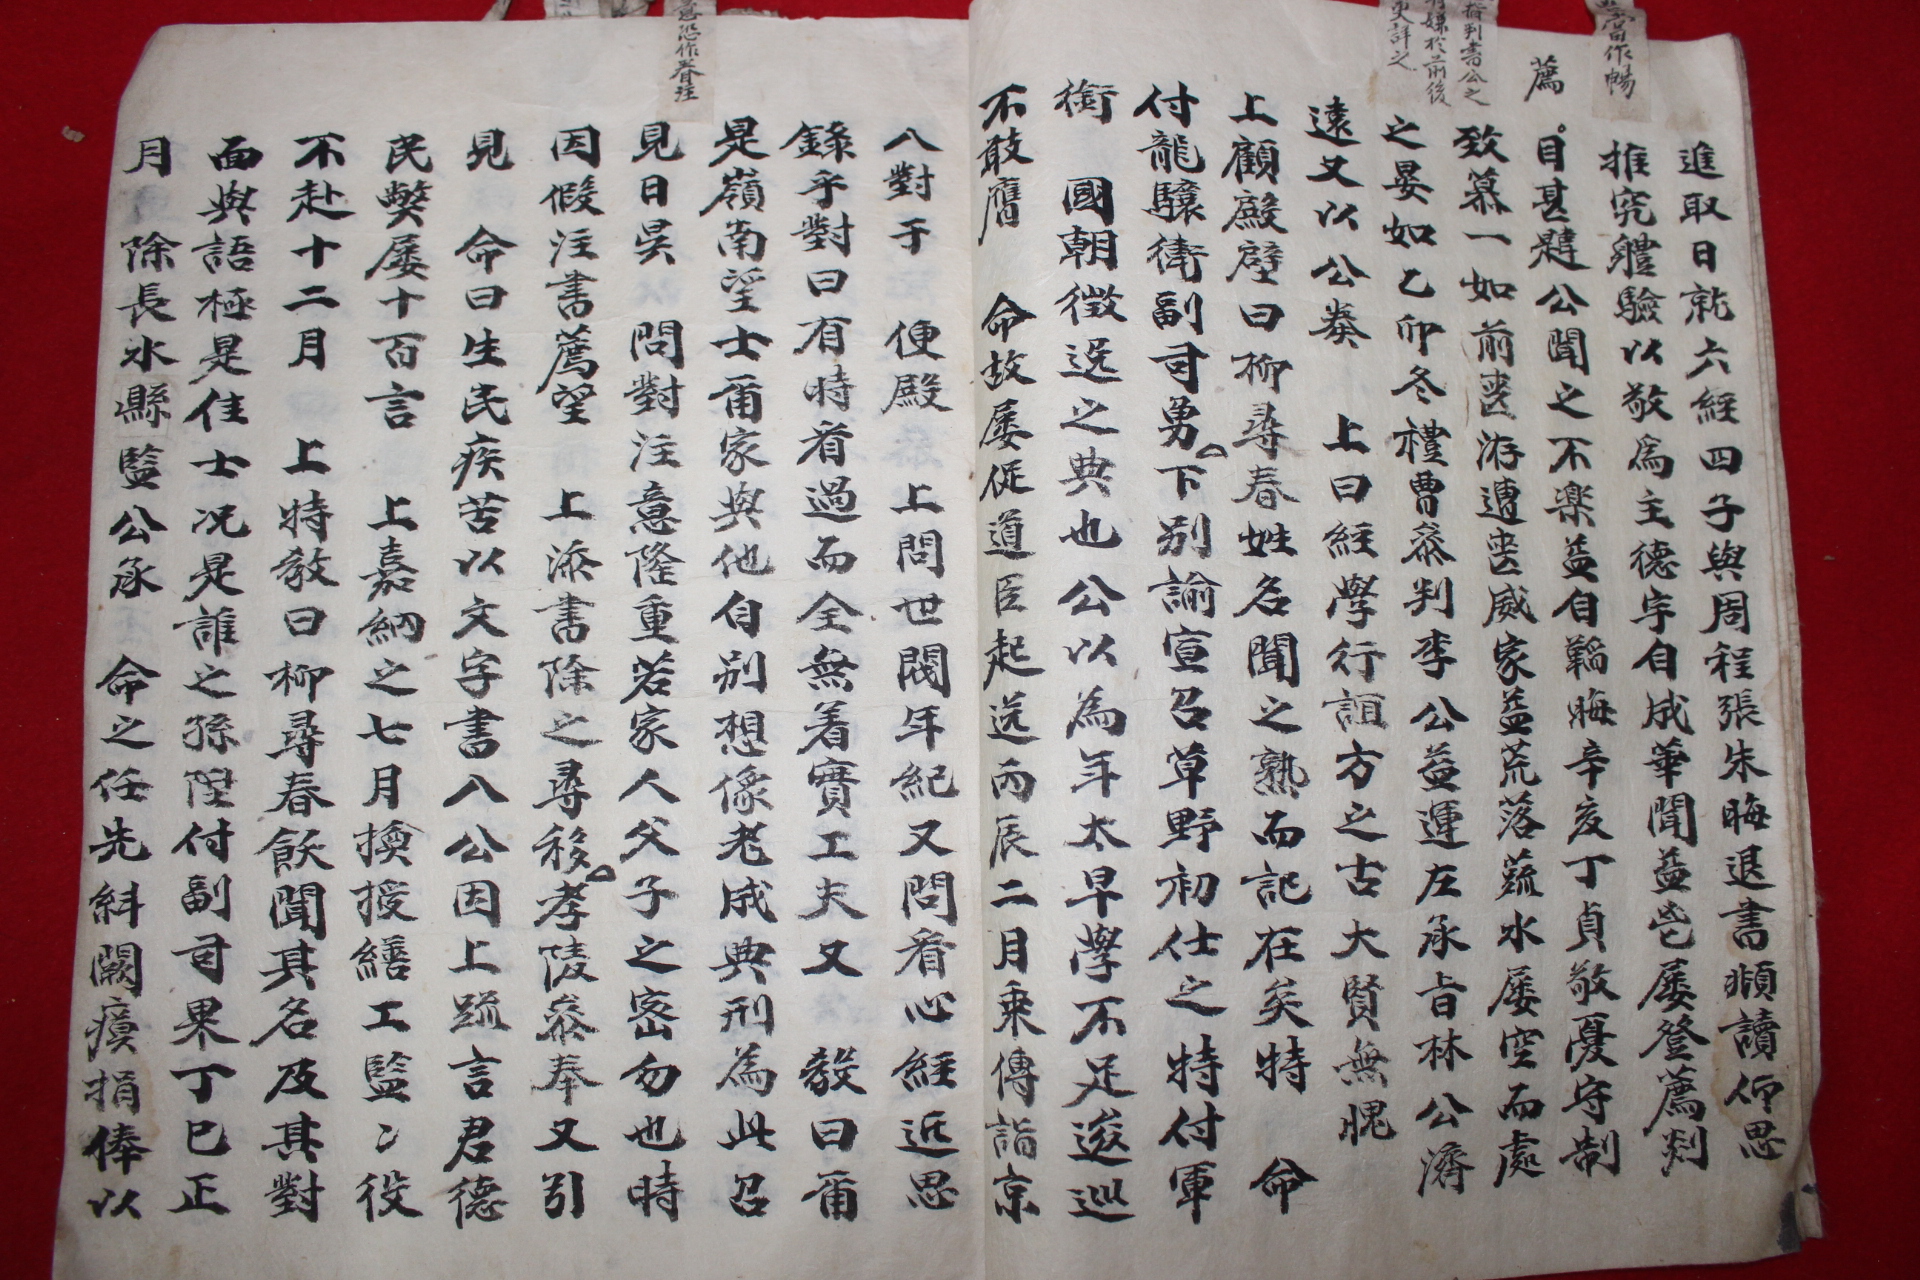 當作暢
指判書公之
嫌於前後
更詳之
薦
進取日就六經四子與周程張朱晦退書頻讀仰思
推究體驗以敬爲主德宇自成華聞益鬯屢登薦剡
目甚韙公聞之不樂益自韜晦辛亥丁貞敬憂守制
致慕一如前喪洊遭喪威家益荒落蔬水屢空而處
之晏如乙卯冬禮曹叅判李公益運左承旨林公濟
遠又以公奏 上曰經學行誼方之古大賢無愧
上顧殿壁曰柳尋春姓名聞之熟而記在矣特 命
付龍驤衛副司勇下別諭宣召草野初仕之特付軍
銜 國朝徵逸之典也公以為年太早學不足逡巡
不敢膺 命故屢促道臣起送丙辰二月乘傳詣京
八對于 便殿 上問世閥年紀又問看心經近思
錄乎對曰有時看過而全無着實工夫又 敎曰甭
是嶺南望士甭家與他自別想像老成典刑為此召
見日昃 問對注意隆重若家人父子之密勿也時
因假注書薦望 上添書除之尋移孝陵叅奉又引
見 命曰生民疾苦以文字書八公因上疏言君德
民弊屢十百言 上嘉納之七月換授繕工監〻役
不赴十二月 上特敎曰柳尋春飫聞其名及其對
面與語極是佳士況是誰之孫陞付副司果丁巳正
月 除長水縣監公承 命之任先糾闕瘼捐俸以
意恐作眷注